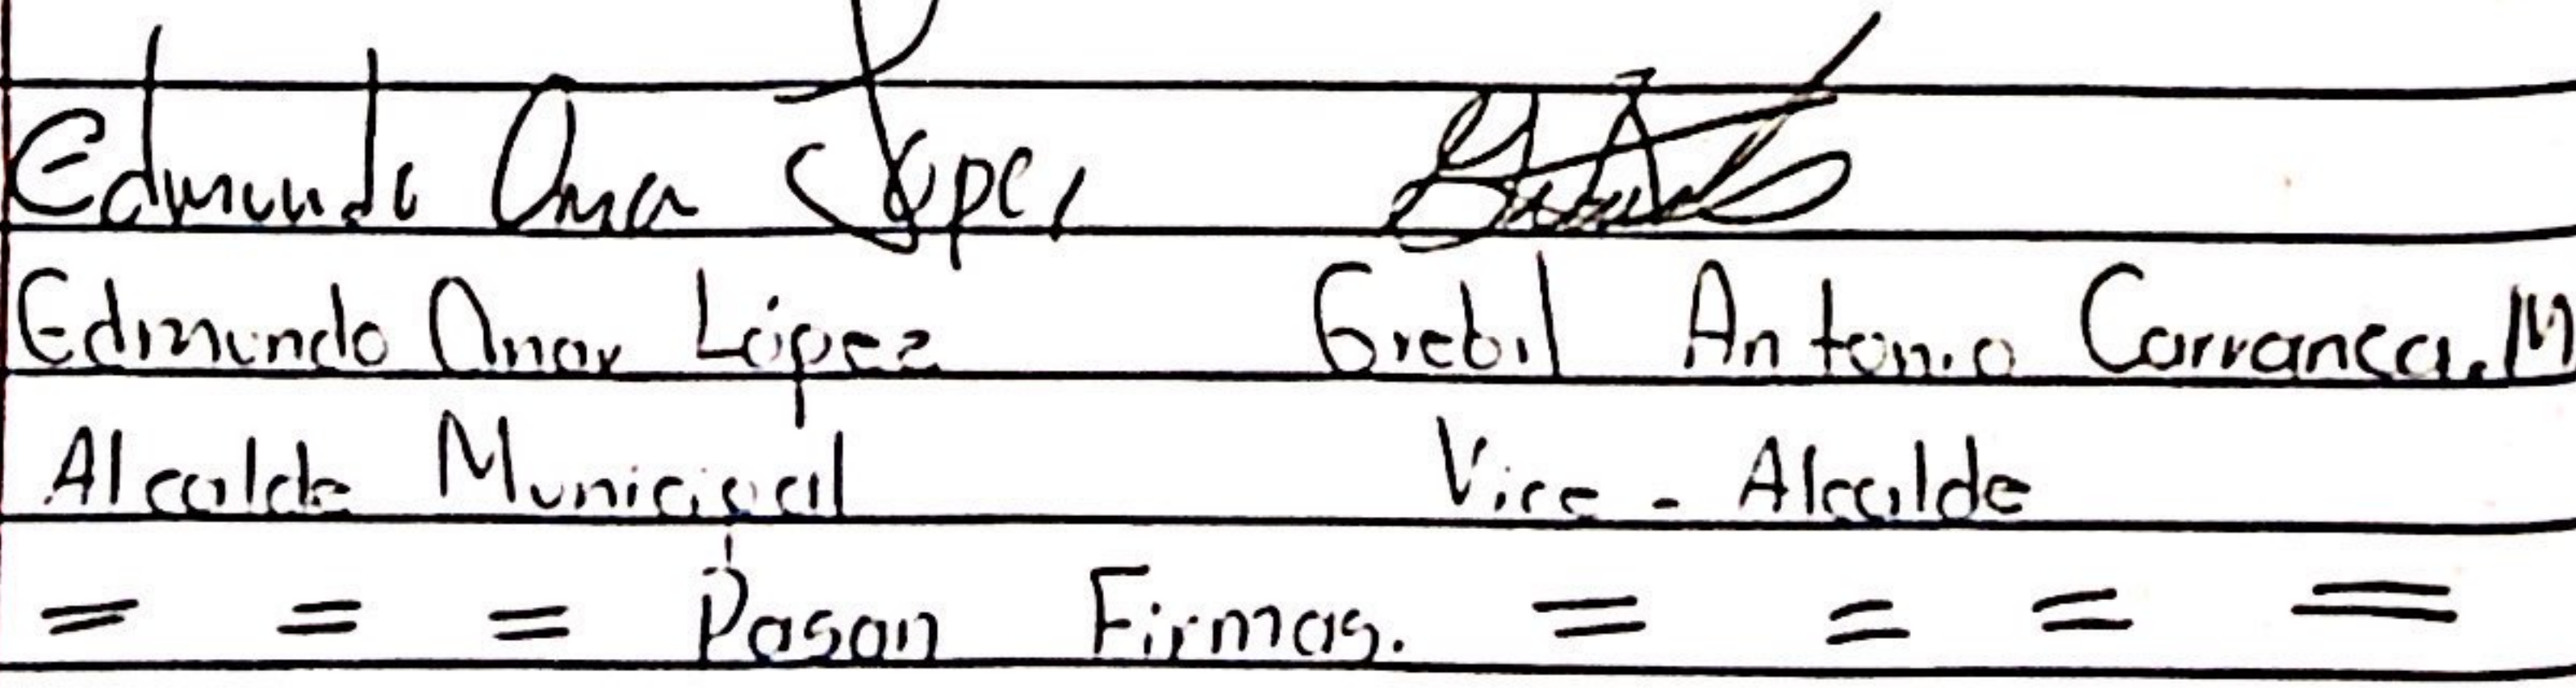 Edmundo Omar López
Edmundo Omar López Grebil Antonio Carranca. M
Alcalde Municipal Vice - Alcalde
= = = Pasan Firmas. = = = =